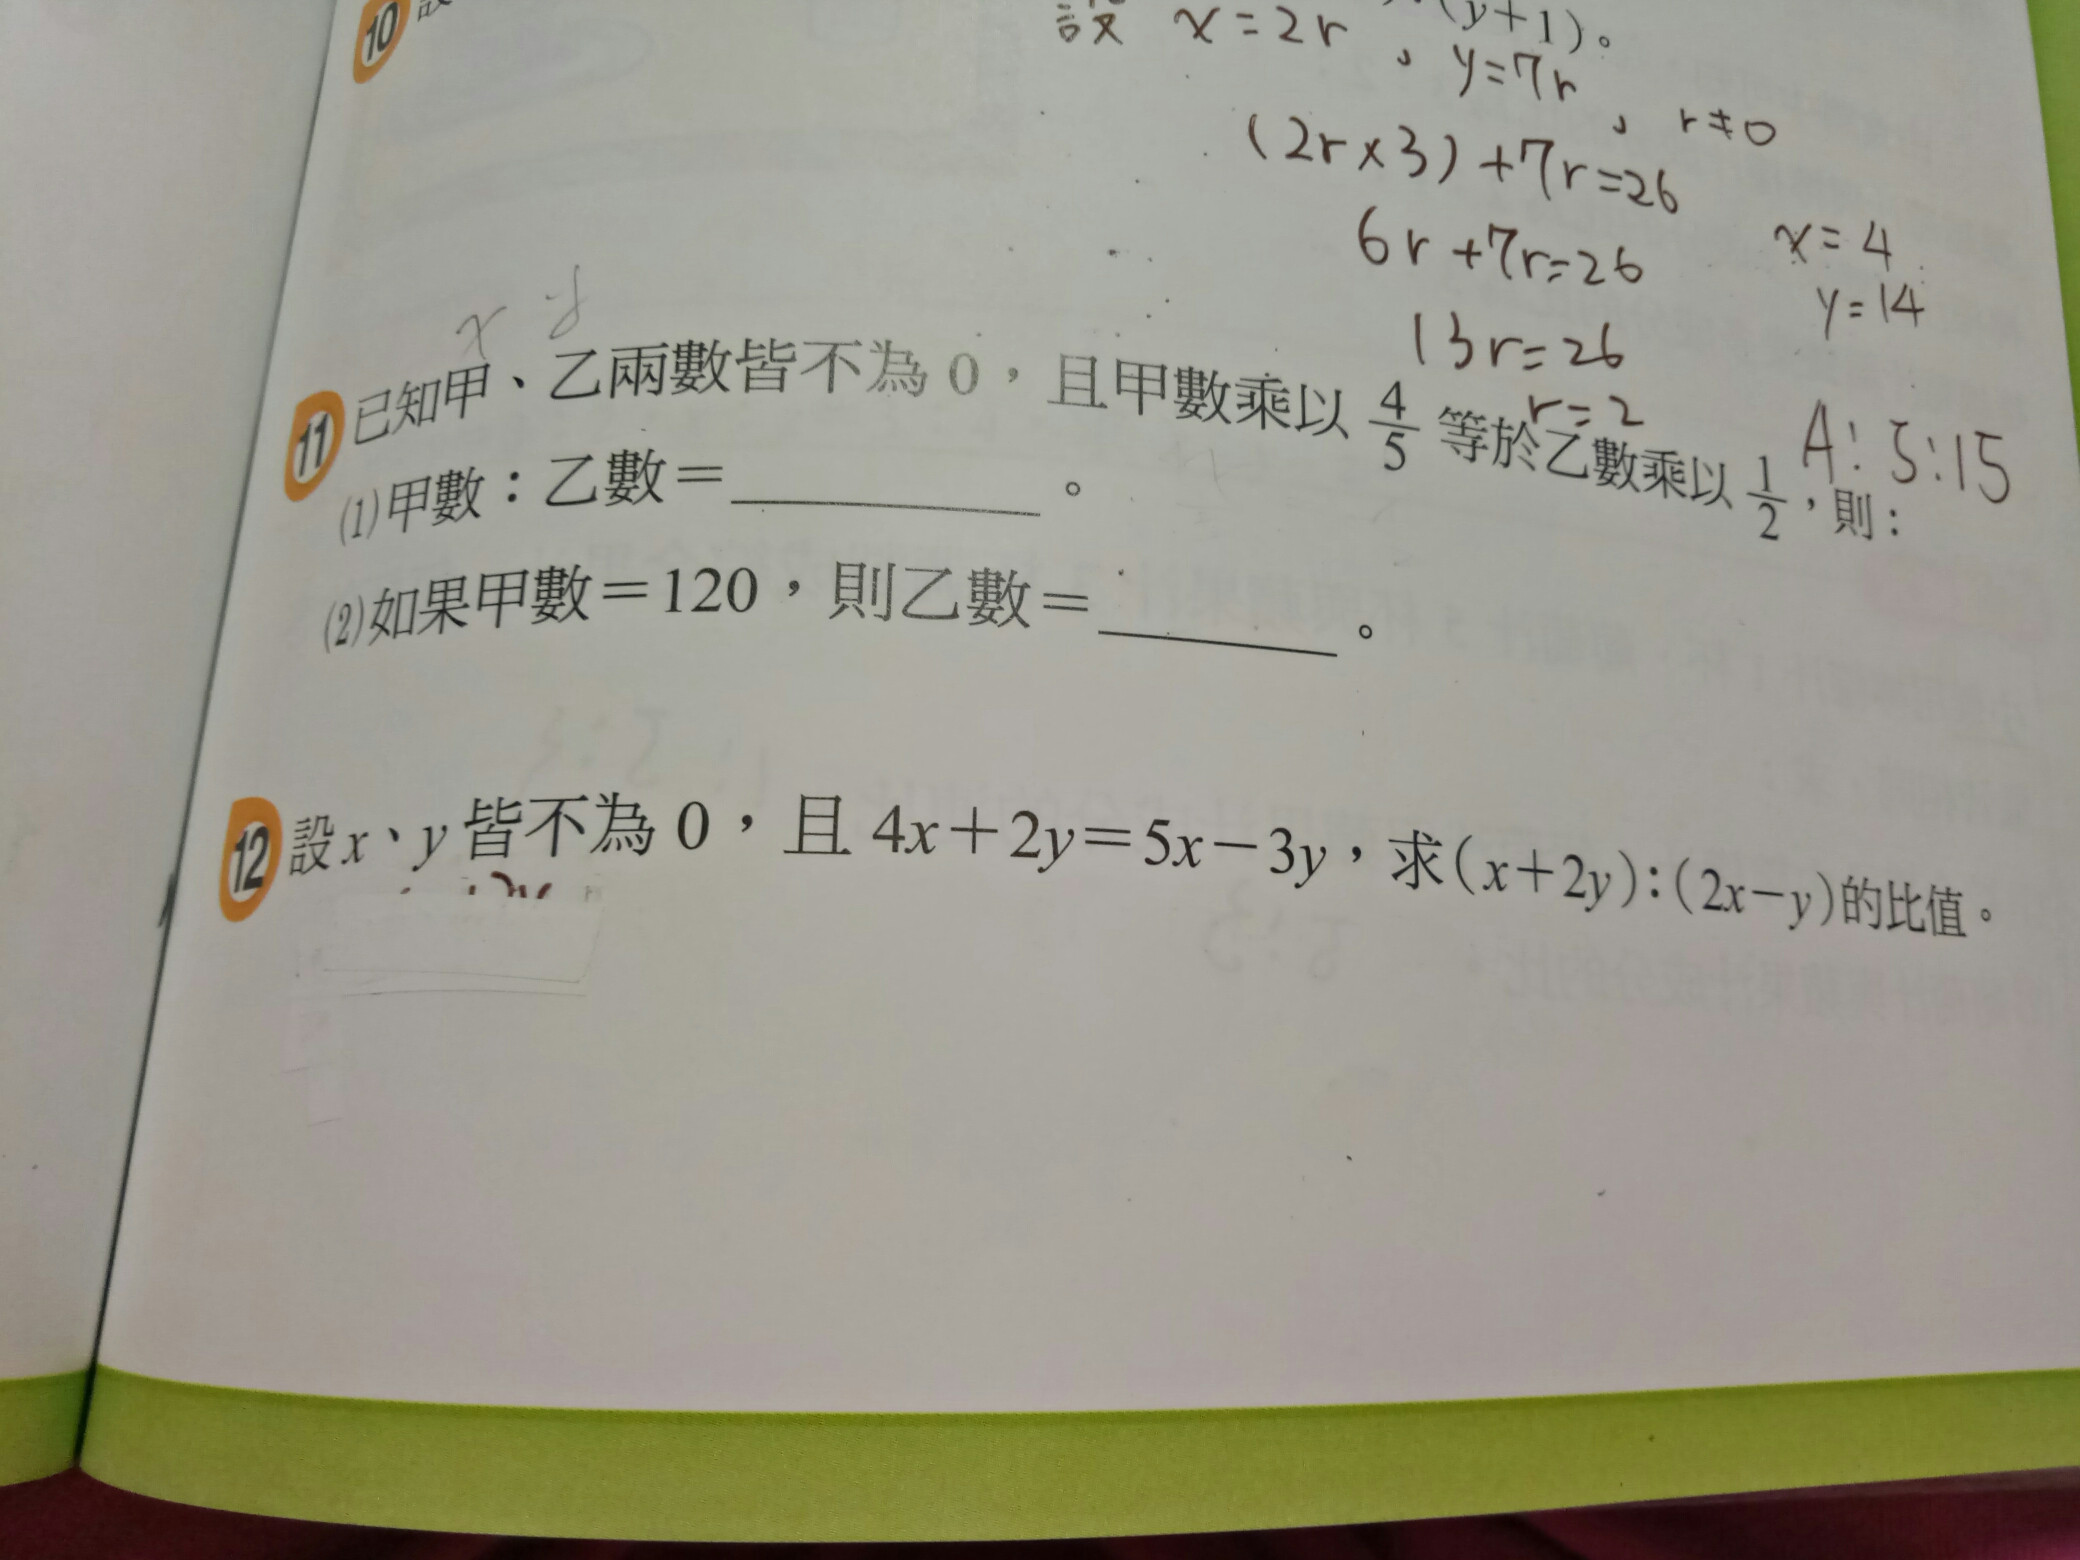 10 設
(y+1)。
設 x=2r , y=7r , r≠0
(2r×3)+7r=26
6r+7r=26
13r=26
r=2
x=4
y=14
A: 5:15
x y
11 已知甲、乙兩數皆不為 0,且甲數乘以 4/5 等於乙數乘以 1/2,則:
(1)甲數:乙數=________。
(2)如果甲數=120,則乙數=________。
12 設 x、y 皆不為 0,且 4x+2y=5x-3y,求(x+2y):(2x-y)的比值。